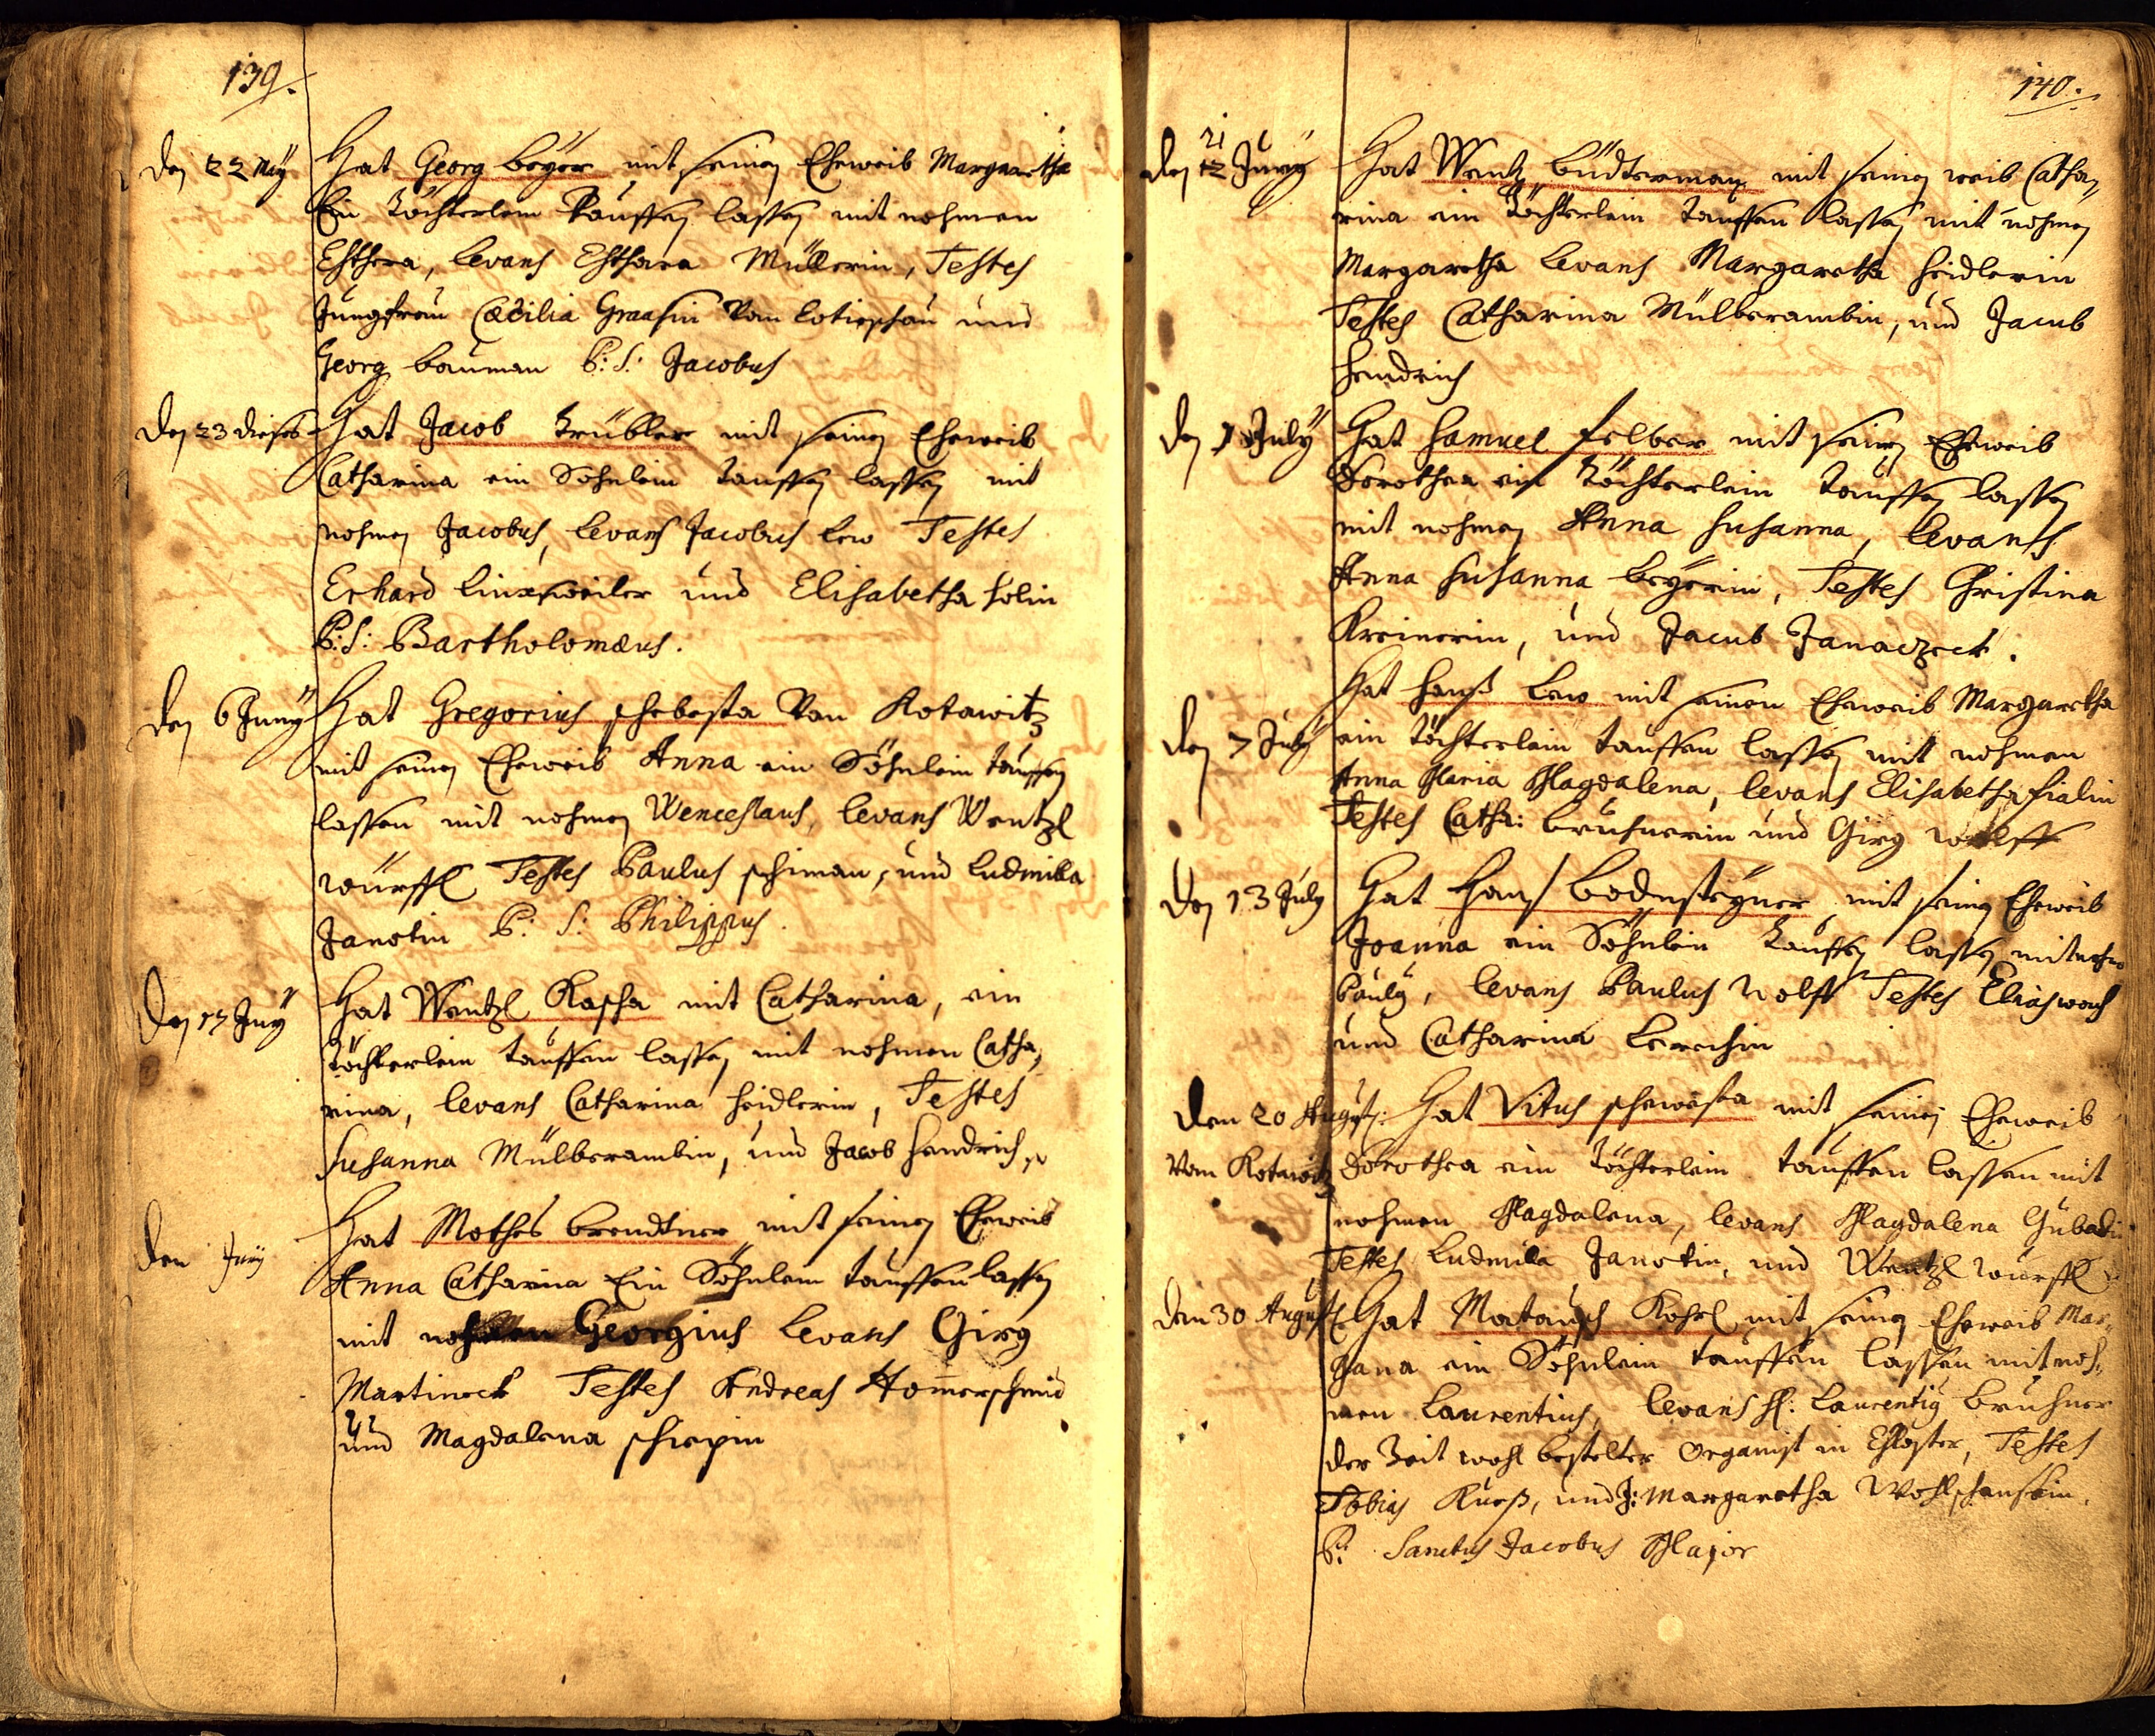 139.
den 22 May Hat Georg beÿer mit seinen Eheweib Margaretha
Ein Töchterlein Tauffen lassen mit nohmen
Esthera, levans Esthara Müllerin, Testes
Jungfrau Cæcilia Graasin Von Cotieschau und
Georg bauman P: S: Jacobus
den 23 dieses Hat Jacob Trübler mit seinen Eheweib
Catharina ein Sohnlein tauffen lassen mit
nohmen Jacobus, levans Jacobus lew Testes
Erhard linxsweiler und Elisabetha holin
P: S: Bartholomæus.
den 6 Junÿ Hat Gregorius schebesta Von Kotawitz
mit seinen Eheweib Anna ein Söhnlein tauffen
lassen mit nohmen Wenceslaus, levans Wentzl
würffl Testes Paulus schiman, und Ludmilla
Janotin P: S: Philippus.
den 17 Juny Hat Wentzl Kascha mit Catharina, ein
töchterlein tauffen lassen mit nohmen Catha,
rina, levans Catharina heidlerin, Testes
Susanna Mülberambin, und Jacob Hendrich
den Juny Hat Mothes brendtner mit seinen Eheweib
Anna Catharina Ein Söhnlein tauffen lassen
mit nohmen Georgius levans Girg
Martineck Testes Andreas Hom̄erschmid
und Magdalena
140.
21
den 12 Juny Hat Wentz büdterman mit seinen weib Catha,
rina ein Töchterlein tauffen lassen mit nohmen
Margaretha levans Margaretha heidlerin
Testes Catharina Mülberambin, und Jacub
heindrich
den July Hat Samuel felber mit seinen Eheweib
Dorothea ein Töchterlein tauffen lassen
mit nohmen Anna Susanna, levans
Anna Susanna beÿerin, Testes Christina
Kreinerin, und Jacub Janaczeck.
Hat Hanß Lew mit seinen Eheweib Margaretha
den 7 July ein töchterlein tauffen lassen mit nohmen
Anna Maria Magdalena, levans Elisabetha fialin
Testes Catha: bruhnerin und Girg wolff
den 13 July Hat Hans bodensteÿner mit seinen Eheweib
Joanna ein Söhnlein tauffen lassen mit nohmen
Pauly, levans Paulus Wolff Testes Elias
und Catharina Lerechin
den 20 August: Hat Vitus schewesta mit seinen Eheweib
Vom Kotawitz Dorothea ein töchterlein tauffen lassen mit
nohmen Magdalena, levans Magdalena
Testes Ludmila Janotin, und Wentzl würffl
den 30 August Hat Matausch Kohel mit seinen Eheweib Mar,
jana ein Söhnlein tauffen lassen mit noh,
men Laurentius, levans H: Laurentig bruhner
der Zeit wohl bestelter Organist in Closter, Testes
Tobias Kueß, und J: Margaretha
P: Sanctus Jacobus Major